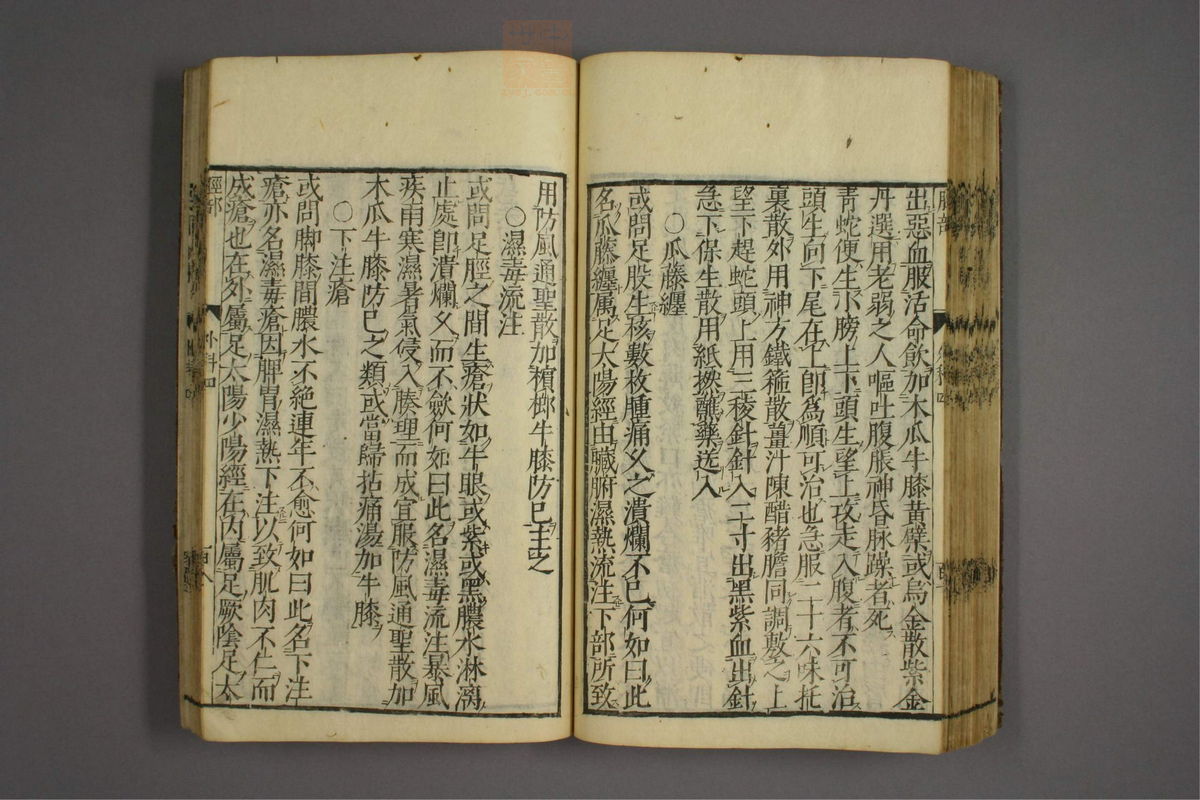 出惡血服活命飲加木瓜牛膝黃蘗或烏金散紫金
丹選用老弱之人嘔吐腹脹神昏脉躁者死
青蛇便生小膀上下頭生望上攻走入腹者不可治
頭生向下尾在上卽為順可治也急服二十六味托
裏散外用神方鐵箍散薑汁陳醋豬膽同調敷之上
望下趕蛇頭上用三稜針針入二寸出黑紫血出針
急下保生散用紙撚蘸藥送入
○瓜藤纏
或問足股生核數枚腫痛乆之潰爛不已何如曰此
名瓜藤纏属足太陽經由臟腑濕熱流注下部所致
用防風通聖散加檳榔牛膝防已主之
○濕毒流注
或問足脛之間生瘡狀如牛眼或紫或黑膿水淋漓
止處卽潰爛乆而不歛何如曰此名濕毒流注暴風
疾雨寒濕暑氣侵入腠理而成宜服防風通聖散加
木瓜牛膝防已之類或當歸拈痛湯加牛膝
○下注瘡
或問脚膝間膿水不絶連年不愈何如曰此名下注
瘡亦名濕毒瘡因脾胃濕熱下注以致肌肉不仁而
成瘡也在外屬足太陽少陽經在内屬足厥陰足太
脛部
外科四
百八